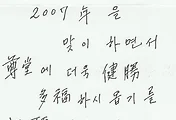 2007年을
맞이 하면서
尊堂에 더욱 健勝
多福하시옵기를